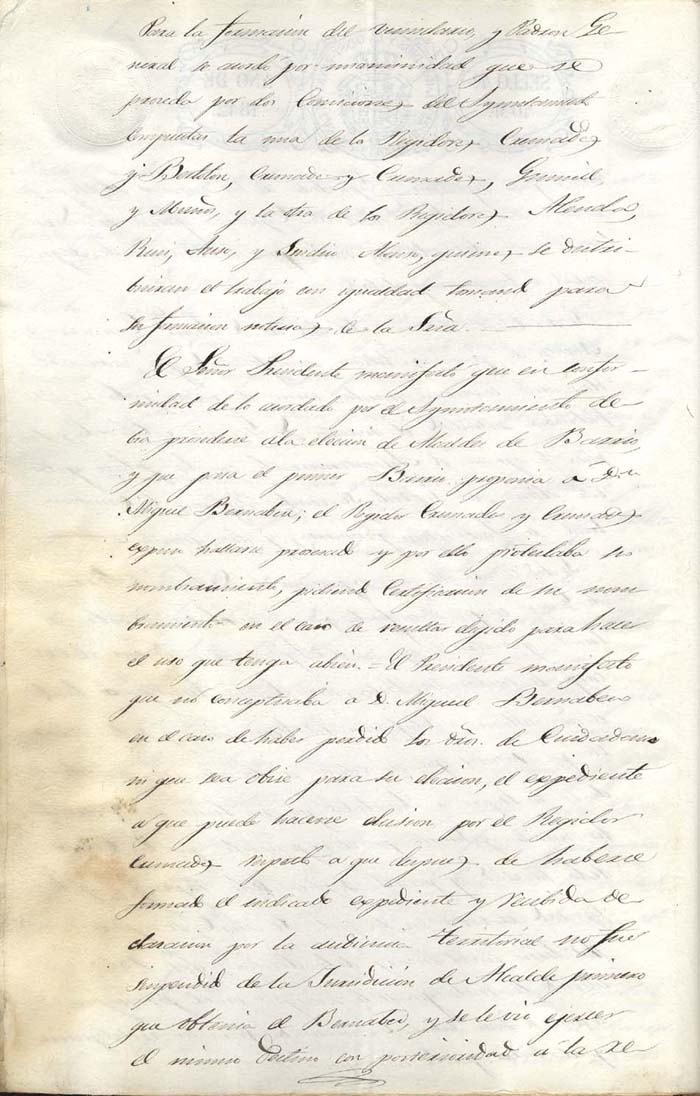 Para la formacion del vecindario, y Padron Ge-
neral se acordo por unanimidad que se
proceda por dos Comisiones del Ayuntamiento
compuestas la una de los Regidores
y y
y Muñoz, y la otra de los Regidores
Ruiz, y quienes se distri-
buiran el trabajo con igualdad tomand para
su formacion noticias de la
El Señor Presidente manifestó que en confor-
midad de lo acordado por el Ayuntamiento de-
bia procederse a la eleccion de Alcaldes de Barrio,
y que para el primer Barrio proponia á Dn
Miguel Bernabeu; el Regidor y
hallarse procesado y por ello protestaba su
nombramiento, pidiend Certificacion de su nom-
bramiento en el caso de resultar elegido para hacer
el uso que tenga abien. = El Presidente manifestó
que no conceptuaba a D. Miguel Bernabeu
en el caso de haber perdido los dros. de Ciudadano
ni que sea obice para su eleccion, el expediente
a que puede hacerse alusion por el Regidor
respecto a que despues de haberse
formado el indicado expediente y recibida de-
claracion por la audiencia territorial no fue
suspendido de la Jurisdicion de Alcalde primero
que obtenia el Bernabeu, y se le vió ejercer
el mismo destino con posterioridad a la re-